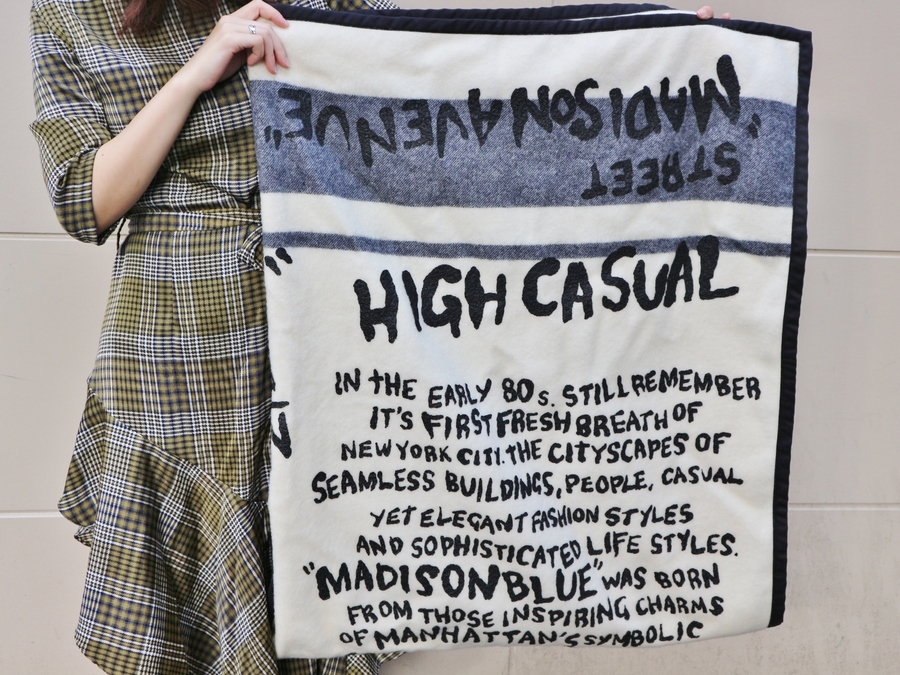 "MADISON AVENUE"
STREET
HIGH CASUAL
IN THE EARLY 80s. STILL REMEMBER
IT'S FIRST FRESH BREATH OF
NEW YORK CITY. THE CITYSCAPES OF
SEAMLESS BUILDINGS, PEOPLE, CASUAL
YET ELEGANT FASHION STYLES
AND SOPHISTICATED LIFE STYLES.
"MADISONBLUE" WAS BORN
FROM THOSE INSPIRING CHARMS
OF MANHATTAN'S SYMBOLIC